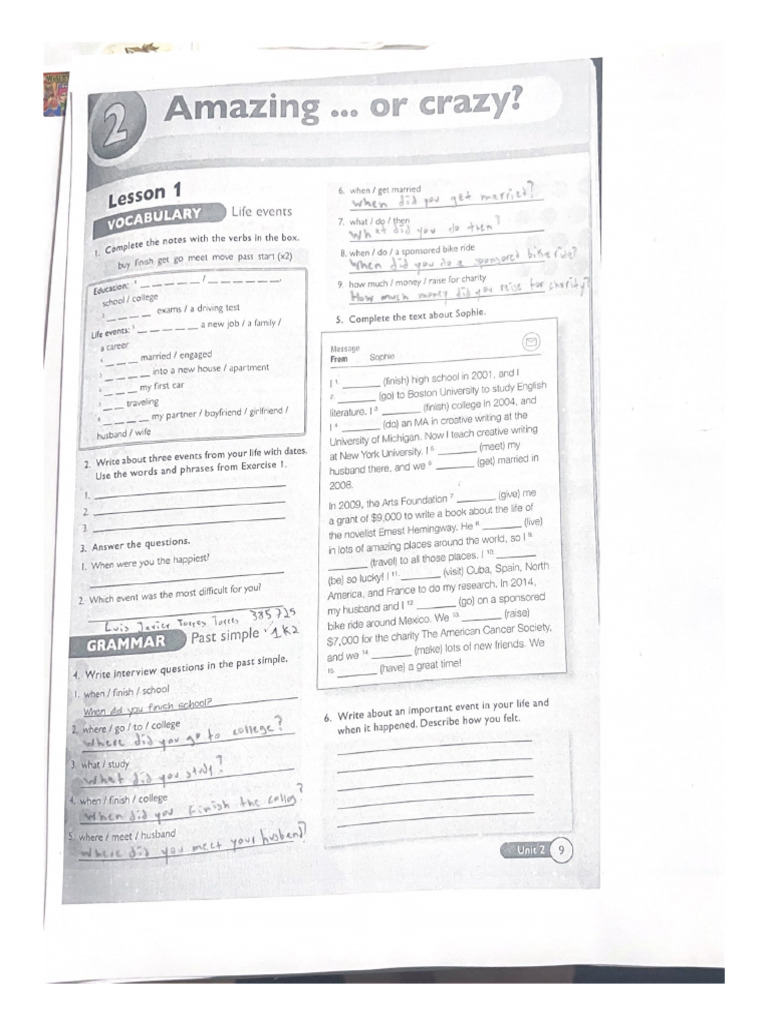 2
Amazing ... or crazy?
Lesson 1
VOCABULARY Life events
1. Complete the notes with the verbs in the box.
buy finish get go meet move pass start (x2)
Education: 1 _ _ _ _ _ / _ _ _ _ _ _,
school / college
2 _ _ _ _ exams / a driving test
Life events: 3 _ _ _ _ _ a new job / a family /
a career
4 _ _ _ married / engaged
5 _ _ _ _ into a new house / apartment
6 _ _ _ my first car
7 _ _ traveling
8 _ _ _ _ my partner / boyfriend / girlfriend /
husband / wife
2. Write about three events from your life with dates.
Use the words and phrases from Exercise 1.
1.
2.
3.
3. Answer the questions.
1. When were you the happiest?
2. Which event was the most difficult for you?
Luis Javier Torres Torres 385725
1K2
GRAMMAR Past simple
4. Write interview questions in the past simple.
1. when / finish / school
When did you finish school?
2. where / go / to / college
Where did you go to college?
3. what / study
What did you study?
4. when / finish / college
When did you finish the colleg?
5. where / meet / husband
Where did you meet your husbend?
6. when / get married
When did you get married?
7. what / do / then
What did you do then?
8. when / do / a sponsored bike ride
When did you do a sponsored bike ride?
9. how much / money / raise for charity
How much money did you reise for charity?
5. Complete the text about Sophie.
Message
From Sophie
I 1 ______ (finish) high school in 2001, and I
2 ______ (go) to Boston University to study English
literature. I 3 ______ (finish) college in 2004, and
I 4 ______ (do) an MA in creative writing at the
University of Michigan. Now I teach creative writing
at New York University. I 5 ______ (meet) my
husband there, and we 6 ______ (get) married in
2008.
In 2009, the Arts Foundation 7 ______ (give) me
a grant of $9,000 to write a book about the life of
the novelist Ernest Hemingway. He 8 ______ (live)
in lots of amazing places around the world, so I 9
______ (travel) to all those places. I 10 ______
(be) so lucky! I 11 ______ (visit) Cuba, Spain, North
America, and France to do my research. In 2014,
my husband and I 12 ______ (go) on a sponsored
bike ride around Mexico. We 13 ______ (raise)
$7,000 for the charity The American Cancer Society,
and we 14 ______ (make) lots of new friends. We
15 ______ (have) a great time!
6. Write about an important event in your life and
when it happened. Describe how you felt.
Unit 2 9